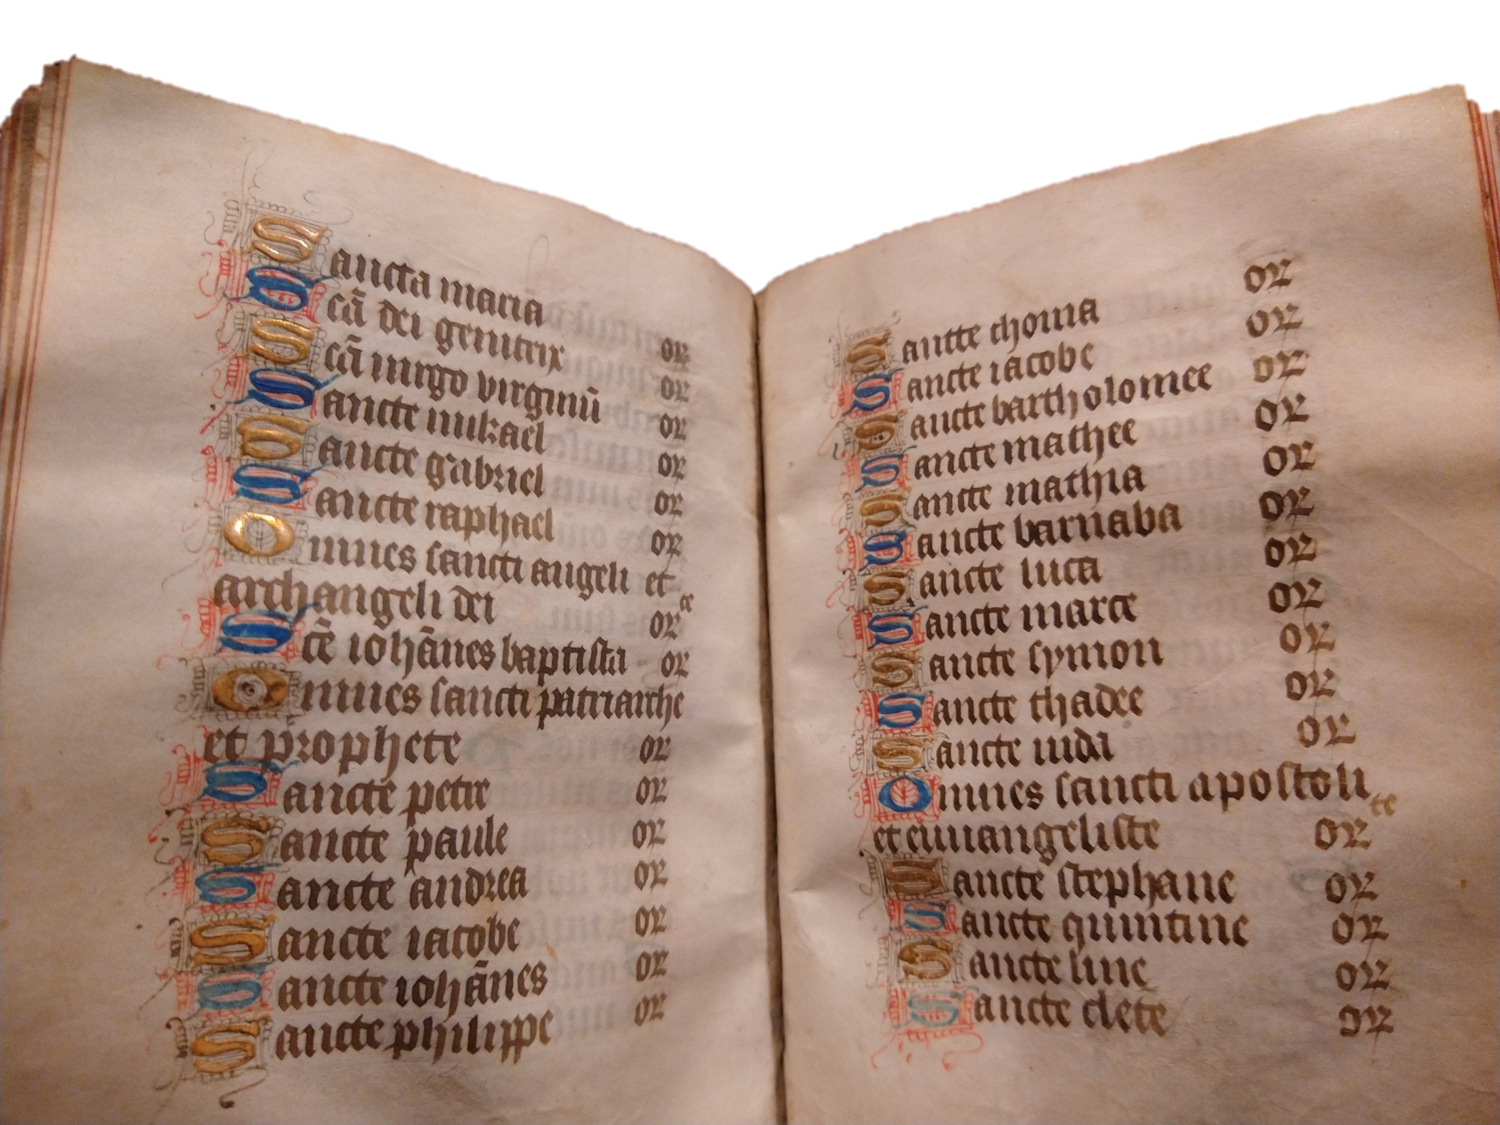 Sancta maria or
Scā dei genitrix or
Scā uirgo virginū or
Sancte mikael or
Sancte gabriel or
Sancte raphael or
Omnes sancti angeli et
archangeli dei orate
Scē iohānes baptista or
Omnes sancti patriarche
et prophete or
Sancte petre or
Sancte paule or
Sancte andrea or
Sancte iacobe or
Sancte iohānes or
Sancte philippe or
Sancte thoma or
Sancte iacobe or
Sancte bartholomee or
Sancte mathee or
Sancte mathia or
Sancte barnaba or
Sancte luca or
Sancte marce or
Sancte symon or
Sancte thadee or
Sancte iuda or
Omnes sancti apostoli
et euuangeliste orate
Sancte stephane or
Sancte quintine or
Sancte line or
Sancte clete or